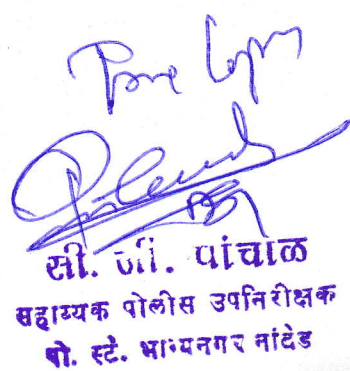 True Copy
सी. जी. पांचाळ
सहाय्यक पोलीस उपनिरीक्षक
पो. स्टे. भाग्यनगर नांदेड